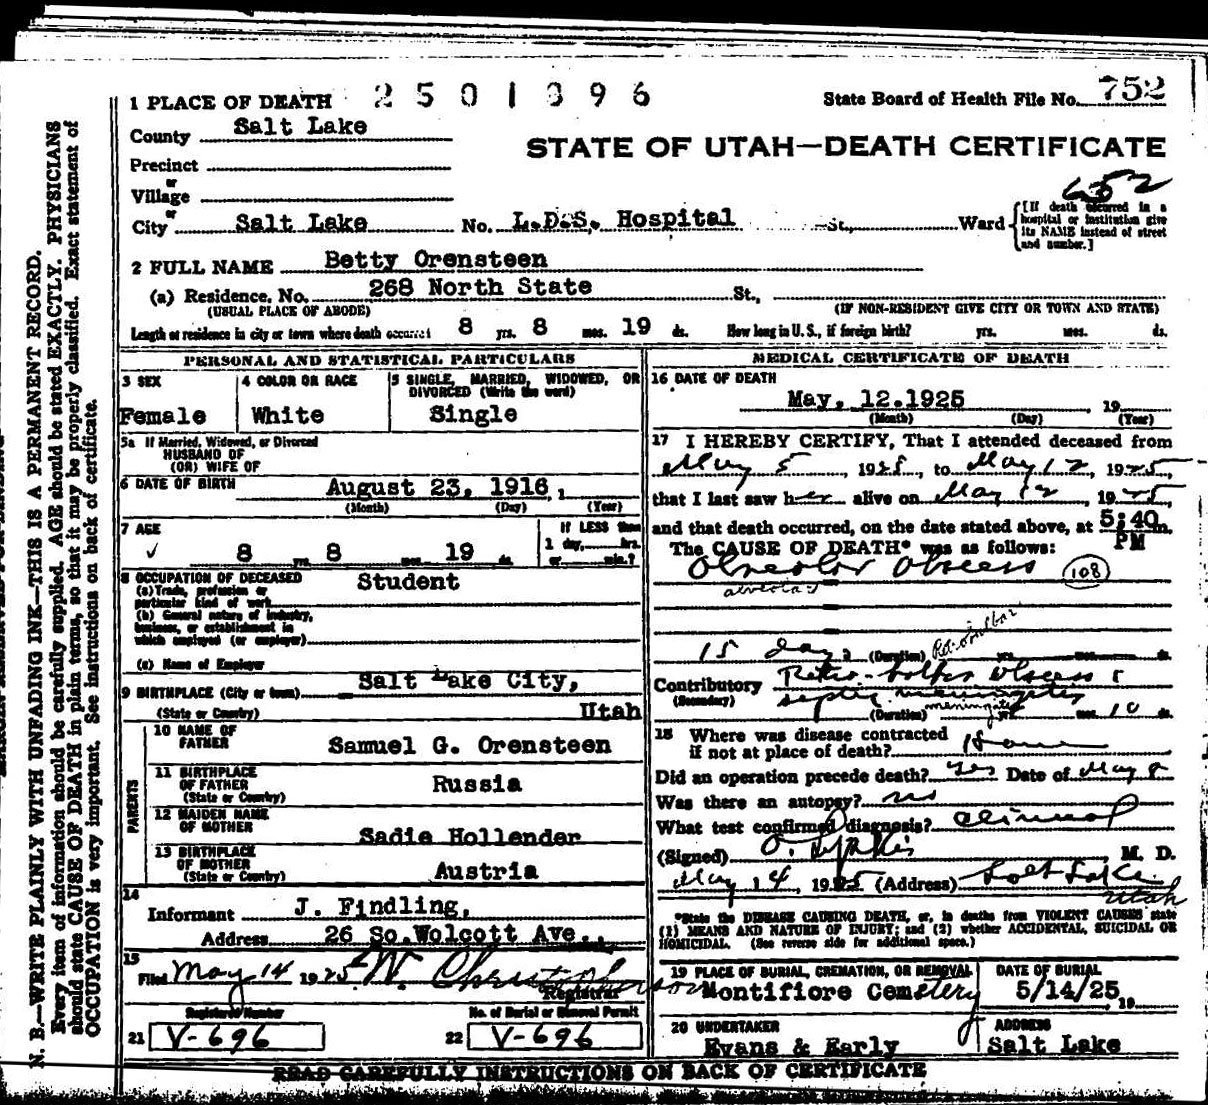 N. B.—WRITE PLAINLY WITH UNFADING INK—THIS IS A PERMANENT RECORD.
Every item of information should be carefully supplied. AGE should be stated EXACTLY. PHYSICIANS
should state CAUSE OF DEATH in plain terms, so that it may be properly classified. Exact statement of
OCCUPATION is very important. See instructions on back of certificate.
1 PLACE OF DEATH 2501396
State Board of Health File No. 752
County Salt Lake
STATE OF UTAH—DEATH CERTIFICATE
Precinct
or
Village
or
652
City Salt Lake No. L.D.S. Hospital St., Ward
[If death occurred in a
hospital or institution give
its NAME instead of street
and number.]
2 FULL NAME Betty Orensteen
(a) Residence, No. 268 North State St.,
(USUAL PLACE OF ABODE) (IF NON-RESIDENT GIVE CITY OR TOWN AND STATE)
Length of residence in city or town where death occurred 8 yrs. 8 mos. 19 ds. How long in U. S., if foreign birth? yrs. mos. ds.
PERSONAL AND STATISTICAL PARTICULARS
3 SEX
Female
4 COLOR OR RACE
White
5 SINGLE, MARRIED, WIDOWED, OR
DIVORCED (Write the word)
Single
5a If Married, Widowed, or Divorced
HUSBAND OF
(OR) WIFE OF
6 DATE OF BIRTH August 23, 1916,
(Month) (Day) (Year)
7 AGE
8 yrs. 8 mos. 19 ds.
If LESS than
1 day, hrs.
or min.?
8 OCCUPATION OF DECEASED Student
(a) Trade, profession or
particular kind of work
(b) General nature of industry,
business, or establishment in
which employed (or employer)
(c) Name of Employer
9 BIRTHPLACE (City or town) Salt Lake City,
(State or Country) Utah
PARENTS
10 NAME OF
FATHER Samuel G. Orensteen
11 BIRTHPLACE
OF FATHER Russia
(State or Country)
12 MAIDEN NAME
OF MOTHER Sadie Hollender
13 BIRTHPLACE
OF MOTHER Austria
(State or Country)
14
Informant J. Findling,
Address 26 So. Wolcott Ave.,
15
Filed May 14 1925
Registrar
Registered Number
21 V-696
No. of Burial or Removal Permit
22 V-696
MEDICAL CERTIFICATE OF DEATH
16 DATE OF DEATH
May, 12.1925, 19
(Month) (Day) (Year)
17 I HEREBY CERTIFY, That I attended deceased from
May 5, 1925, to May 12, 1925,
that I last saw her alive on May 12, 1925
and that death occurred, on the date stated above, at 5:40 m.
PM
The CAUSE OF DEATH* was as follows:
Alveolar Abscess 108
alveolar
15 days (Duration) yrs. mos. ds.
Contributory Retro-bulbar Abscess &
(Secondary) septic meningitis
(Duration) meningitis yrs. mos. 10 ds.
18 Where was disease contracted
if not at place of death? Home
Did an operation precede death? Yes Date of May 8
Was there an autopsy? no
What test confirmed diagnosis? Clinical
(Signed) M. D.
May 14, 1925 (Address) Salt Lake
Utah
*State the DISEASE CAUSING DEATH, or, in deaths from VIOLENT CAUSES state
(1) MEANS AND NATURE OF INJURY; and (2) whether ACCIDENTAL, SUICIDAL OR
HOMICIDAL. (See reverse side for additional space.)
19 PLACE OF BURIAL, CREMATION, OR REMOVAL
Montifiore Cemetery
DATE OF BURIAL
5/14/25, 19
20 UNDERTAKER
Evans & Early
ADDRESS
Salt Lake
READ CAREFULLY INSTRUCTIONS ON BACK OF CERTIFICATE